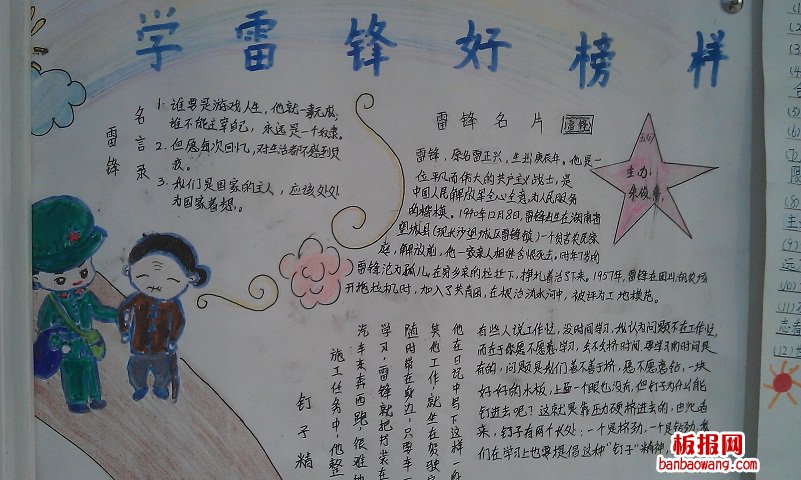 学雷锋好榜样
雷锋名言录
1. 谁要是游戏人生，他就一事无成，
谁不能主宰自己，永远是一个奴隶。
2. 但愿每次回忆，对生活都不感到负
疚。
3. 我们是国家的主人，应该处处
为国家着想。
雷锋名片
雷锋，原名雷正兴，生出庚辰年。他是一
位平凡而伟大的共产主义战士，是
中国人民解放军全心全意为人民服务
的楷模。1940年12月8日，雷锋出生在湖南省
望城县(现长沙望城区雷锋镇)一个贫苦农民家
庭，解放前，他一家亲人相继含恨死去。时年7岁的
雷锋沦为孤儿，在穷乡亲的拉扯下，挣扎着活了下来。1957年，雷锋在团山湖农场
开拖拉机时，加入了共青团，在根治沩水河中，被评为工地模范。
主办：
钉子精
施工任务中，他整
汽车东奔西跑，很难
学习，雷锋就把书装在
随时带在身边，只要车一
笑他在工作就坐在驾驶
他在日记中写下这样一
有些人说工作忙，没时间学习，我认为问题不在工作忙，
而在于你愿不愿意学习，会不会挤时间，要学习的时间是
有的，问题是我们善不善于挤，愿不愿意钻，一块
好好的木板，上面一个眼也没有，但钉子为什么能
钉进去呢？这就是靠压力硬挤进去的，由此看
来，钉子有两个长处：一个是挤劲，一个是钻劲，我
们在学习上也要提倡这种"钉子"精神，
板报网
banbaowang.com
(1)
(2)
(3)
(4)
(5)
(6)
(7)
(8)
(9)
(10)
(11)
(12)